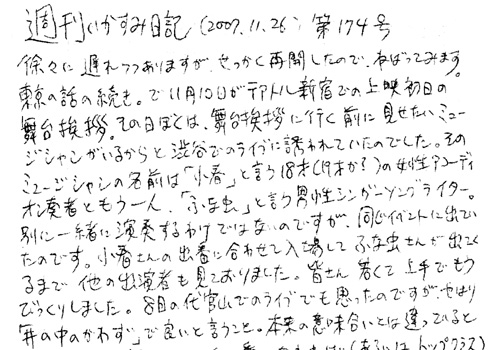 週刊いかすみ日記 (2007.11.26) 第174号
徐々に遅れつつありますが、せっかく再開したので、ねばってみます
東京の話の続きを。で11月10日がテアトル新宿での上映初日の
舞台挨拶。その日ぼくは、舞台挨拶に行く前に見せたいミュー
ジシャンがいるからと渋谷でのライブに誘われていたのでした。その
ミュージシャンの名前は「小春」と言う18才(19才かも)の女性アコーディ
オン奏者ともう一人、「ふな虫」と言う男性シンガーソングライター。
別に一緒に演奏するわけではないのですが、同じイベントに出てい
たのです。小春さんの出番に合わせて入場してふな虫さんが出てく
るまで他の出演者も見ておりました。皆さん若くて上手でもう
びっくりしました。8日の代官山でのライブでも思ったのですが、やはり
「井の中のかわず」で良いと言うこと。本来の意味合いとは違っていると
(あるいはトップクラス)